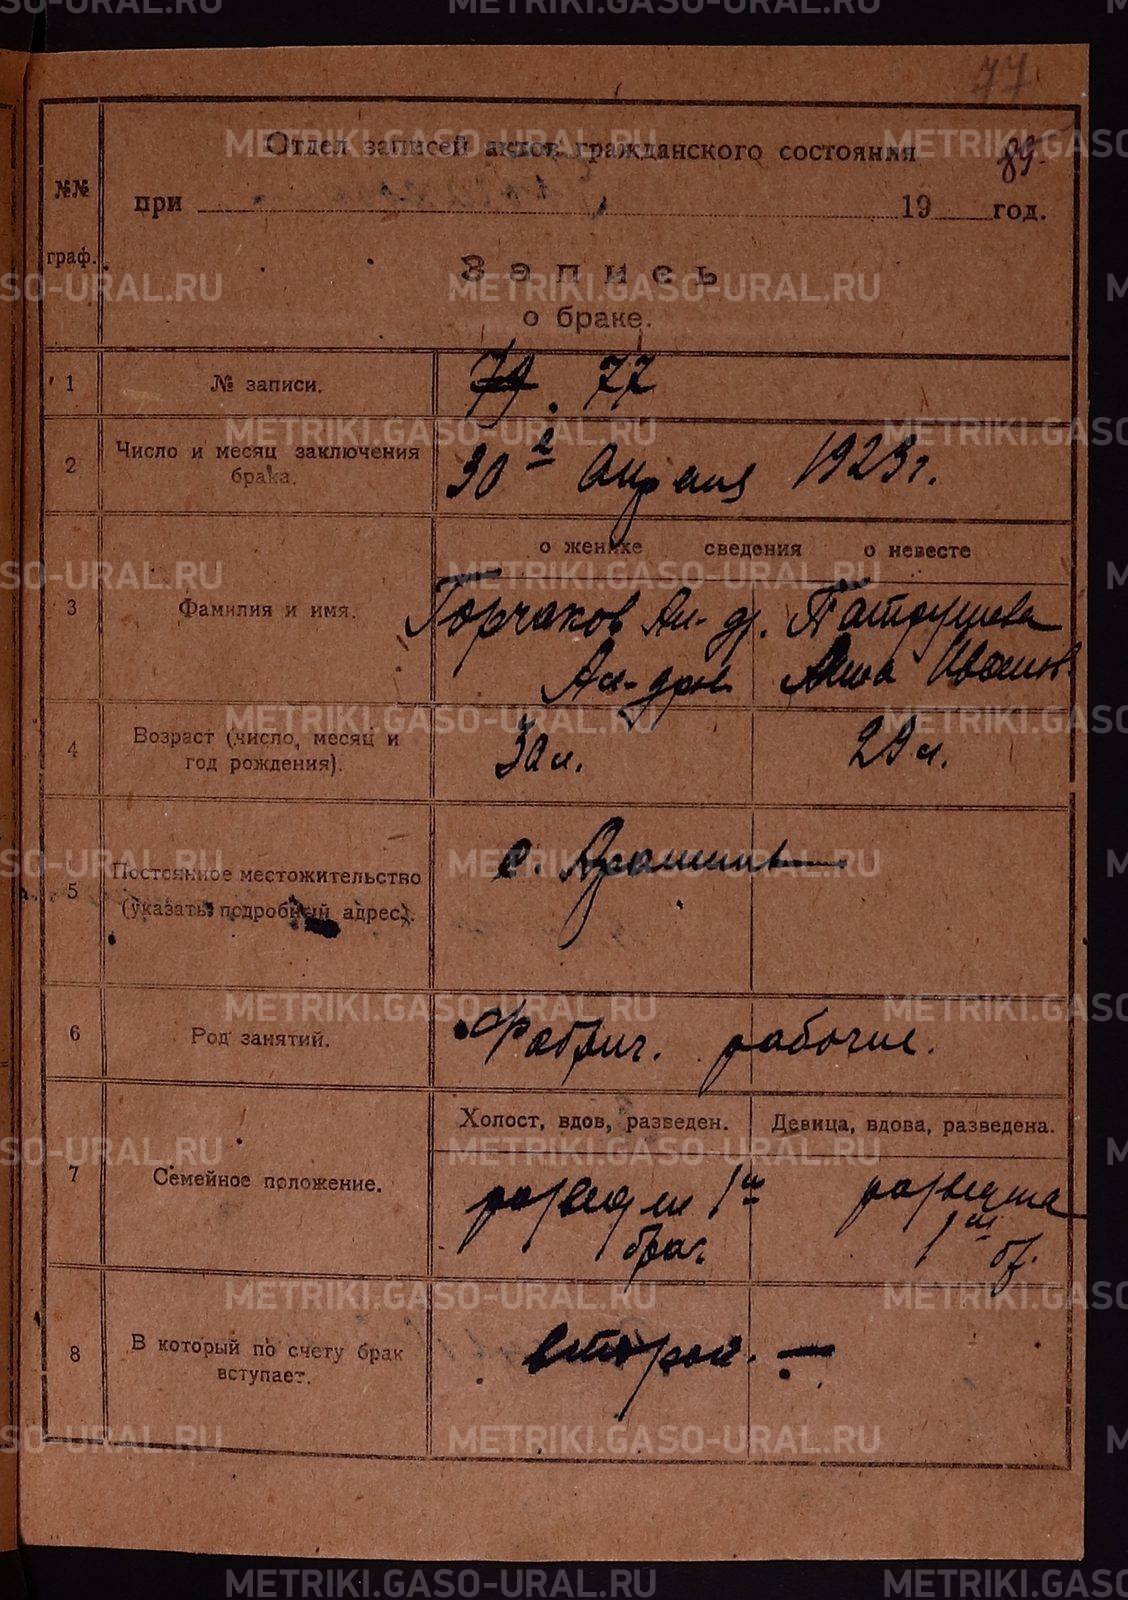 77
Отдел записей актов гражданского состояния
89
№№ граф.
при 19 год.
Запись
о браке.
1 № записи. 79. 77
2 Число и месяц заключения брака. 30го Апреля 1923 г.
о женихе сведения о невесте
3 Фамилия и имя. Горчаков Ал-др. Патрушева
Ал-дров. Анна Иванов.
4 Возраст (число, месяц и год рождения). 30 л. 29 л.
5 Постоянное местожительство (указать подробный адрес). с. Арамиль —
6 Род занятий. Фабрич. рабочие.
Холост, вдов, разведен. Девица, вдова, разведена.
7 Семейное положение. 1й разведена
брак. 1й бр.
8 В который по счету брак вступает. второй. —
METRIKI.GASO-URAL.RU